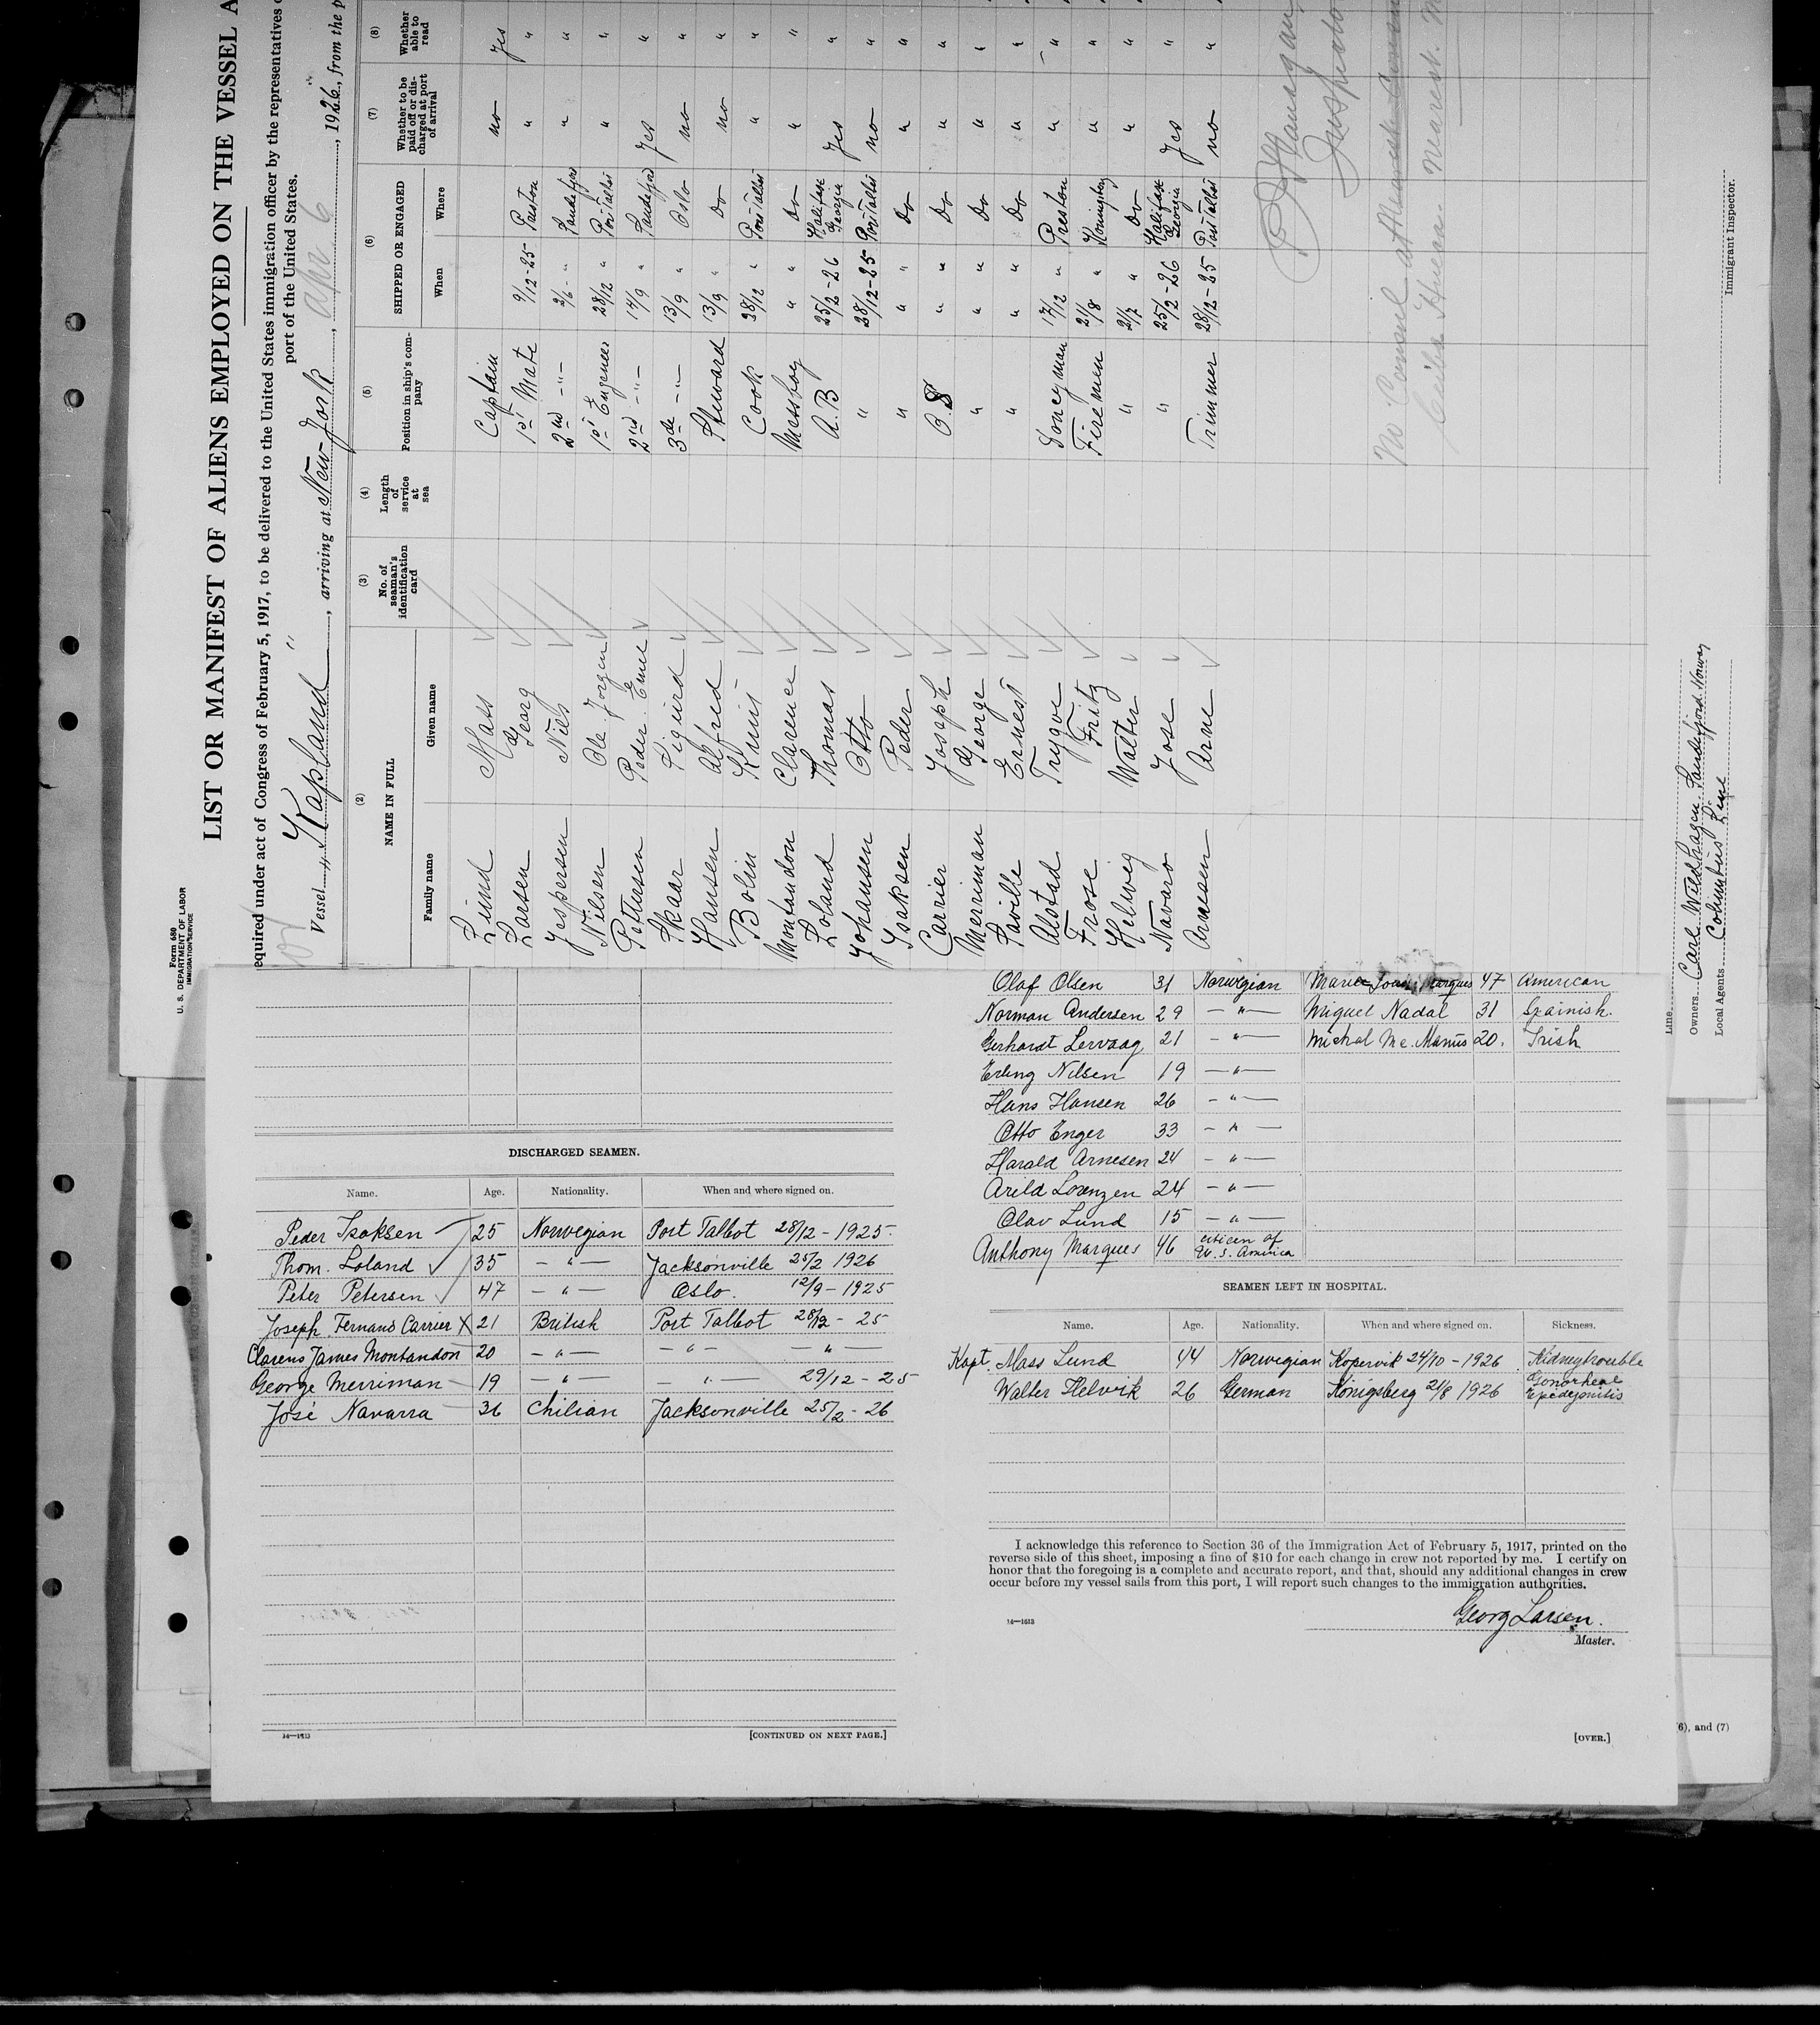 Form 680
U. S. DEPARTMENT OF LABOR
IMMIGRATION SERVICE
LIST OR MANIFEST OF ALIENS EMPLOYED ON THE VESSEL A
equired under act of Congress of February 5, 1917, to be delivered to the United States immigration officer by the representatives
port of the United States.
Vessel "Kapland", arriving at New-York, Apr 6, 1926, from the p
(2) (3) (4) (5) (6) (7) (8)
NAME IN FULL No. of seaman's identification card Length of service at sea Position in ship's company SHIPPED OR ENGAGED Whether to be paid off or discharged at port of arrival Whether able to read
Family name Given name When Where
Lund Mass Captain no Yes
Larsen Georg 1st Mate 9/12-25 Preston " "
Jespersen Niels 2nd -"- 2/6- " Sandefjord " "
Nilsen Ole Jorgen 1st Engineer 28/12 " Port Talbot " "
Pettersen Peder Emil 2nd -"- 14/9 " Sandefjord Yes "
Skaar Sigurd 3de -"- 13/9 " Oslo no "
Hansen Alfred Steward 13/9 " Do no "
Bolin Knut Cook 28/12 " Port Talbot " "
Montandon Clarence Messboy " " Do " "
Loland Thomas A.B 25/2-26 Halifax Georgia Yes "
Johansen Otto " 28/12-25 Port Talbot no "
Isaksen Peder " " " Do " "
Carrier Joseph O S " " Do " "
Merriman George " " " Do " "
Saville Ernest " " " Do " "
Alstad Trygve Doneyman 17/12 " Preston " "
Frose Fritz Firemen 21/8 " Konningsberg " "
Helwig Walter " 21/8 " Do " "
Navaro Jose " 25/2-26 Halifax Georgia Yes "
Arnesen Arne Trimmer 28/12-25 Port Talbot no "
Inspector
No Consul at
Line
Owners Carl Wildhagen Sandefjord Norway
Local Agents Columbus Line
Immigrant Inspector.
(6), and (7)
DISCHARGED SEAMEN.
Name. Age. Nationality. When and where signed on.
Peder Isaksen 25 Norwegian Port Talbot 28/12-1925.
Thom. Loland 35 -"- Jacksonville 25/2 1926
Peter Petersen 47 -"- Oslo. 12/9-1925
Joseph Fernand Carrier X 21 British Port Talbot 28/12-25
Clarens James Montandon 20 -"- -"- -"-
George Merriman 19 -"- -"- 29/12-25
José Navarra 36 Chilian Jacksonville 25/2-26
14—1613
[CONTINUED ON NEXT PAGE.]
Olaf Olsen 31 Norwegian Marques 47 American
Norman Andersen 29 -"- Miguel Nadal 31 Spainish.
Gerhardt Lervaag 21 -"- Michal Mc. Manus 20. Irish
Erling Nilsen 19 -"-
Hans Hansen 26 -"-
Otto Enger 33 -"-
Harald Arnesen 24 -"-
Arild Lorenzen 24 -"-
Olav Lund 15 -"-
Anthony Marques 46 citicen of U.S. America
SEAMEN LEFT IN HOSPITAL.
Name. Age. Nationality. When and where signed on. Sickness.
Kapt. Mass Lund 44 Norwegian Kopervik 24/10-1926 Kidneytrouble
Walter Helvik 26 German Königsberg 21/8 1926 Gonorheal Epedejonitis
I acknowledge this reference to Section 36 of the Immigration Act of February 5, 1917, printed on the
reverse side of this sheet, imposing a fine of $10 for each change in crew not reported by me. I certify on
honor that the foregoing is a complete and accurate report, and that, should any additional changes in crew
occur before my vessel sails from this port, I will report such changes to the immigration authorities.
Georg Larsen.
14—1613
Master.
[OVER.]